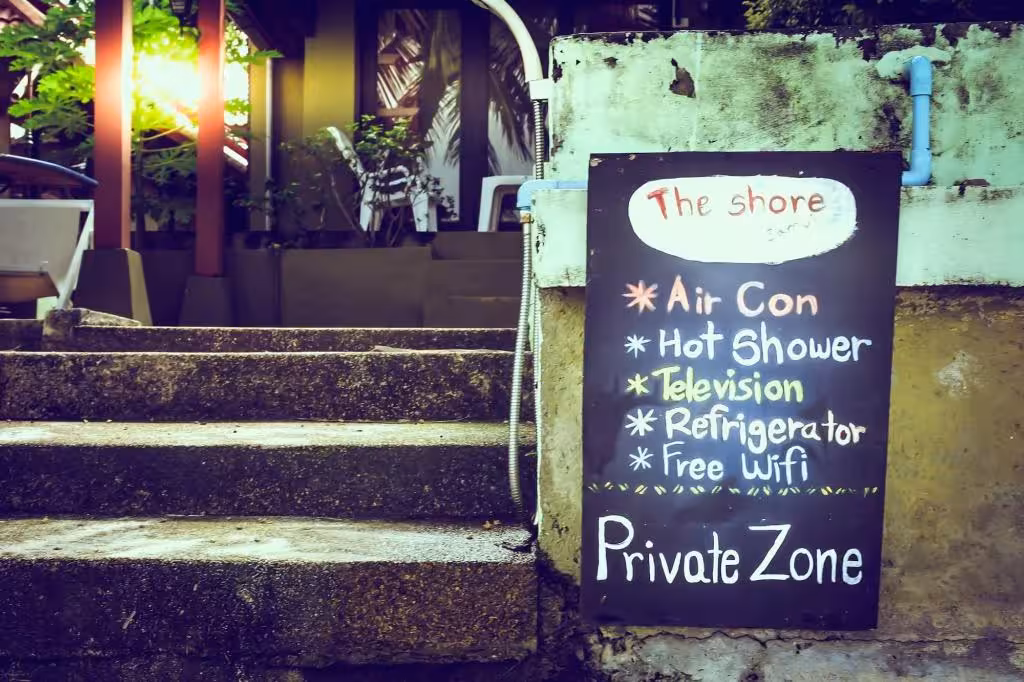 The shore
* Air Con
* Hot Shower
* Television
* Refrigerator
* Free Wifi
Private Zone